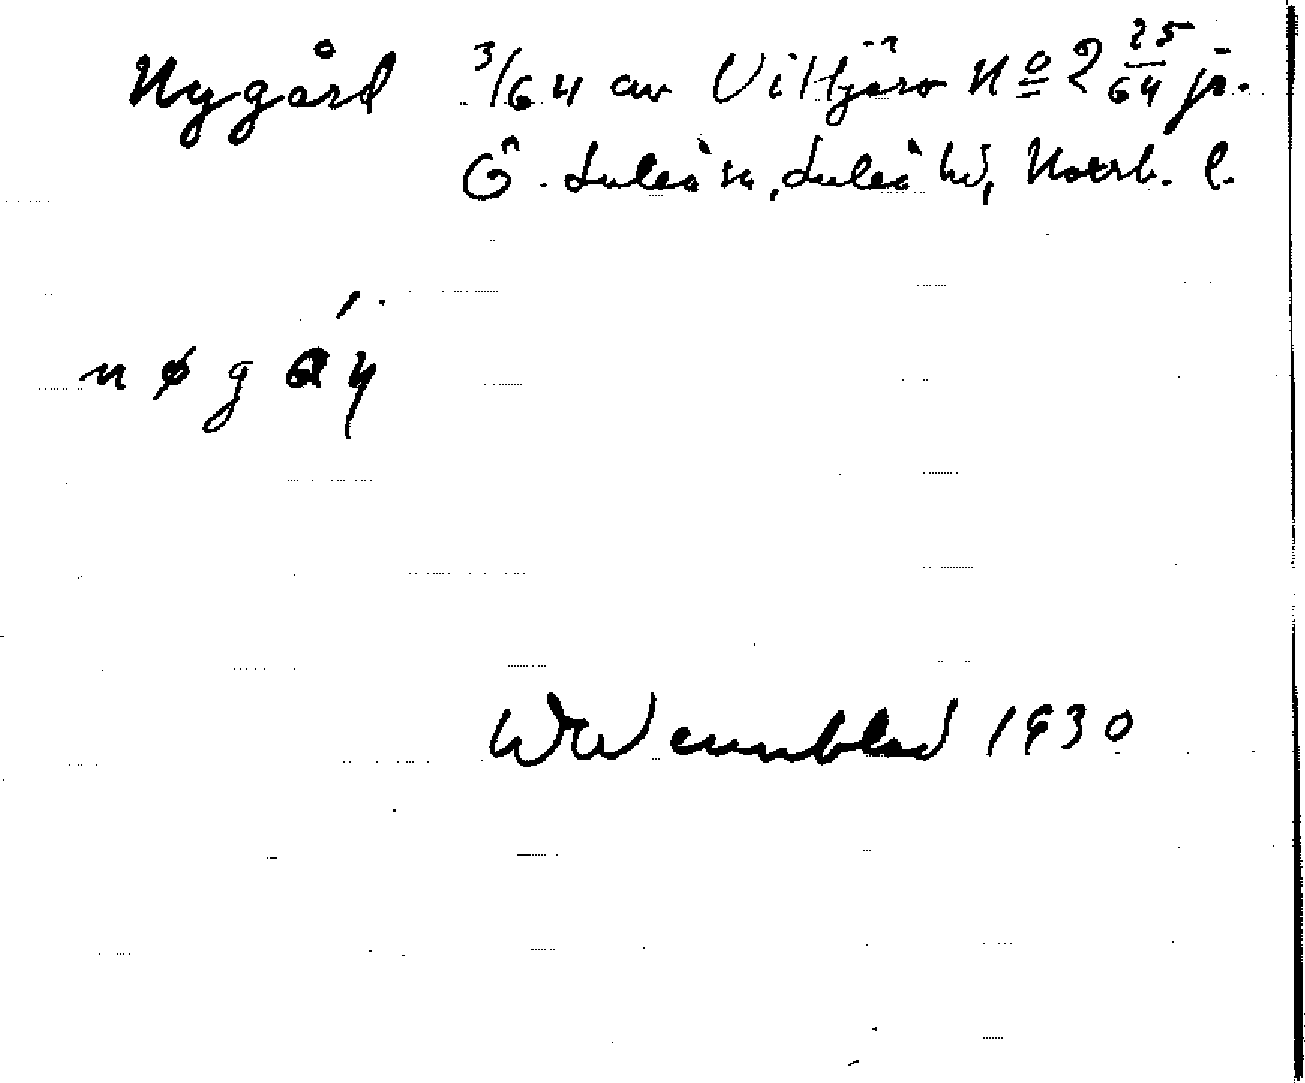 Nygård 3/64 av Vittjärv No 2 25/64 jb.
Ö. Luleå sn, Luleå hd, Norrb. l.
W Wennblad 1930